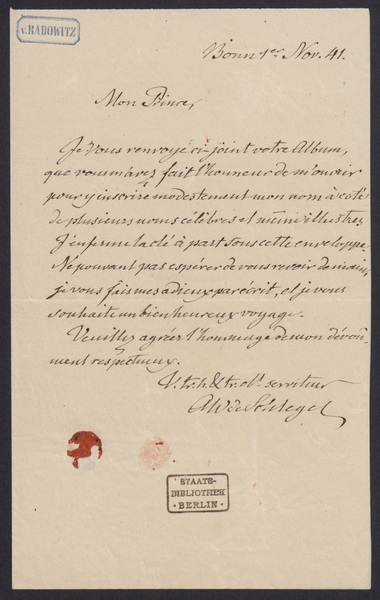 v. RADOWITZ
Bonn 1er Nov. 41.
Mon Prince,
Je Vous renvoye ci-joint votre Album,
que vous m'avez fait l'honneur de m'ouvrir
pour y inscrire modestement mon nom à coté
de plusieurs noms célèbres et même illustres.
J'enferme la clé à part sous cette enveloppe.
Ne pouvant pas espérer de vous revoir demain,
je vous fais mes adieux par écrit, et je vous
souhaite un bien heureux voyage.
Veuillez agréer l'hommage de mon dévou-
ment respectueux.
V. tr. h. & tr. ob. serviteur
AW de Schlegel
STAATS-
BIBLIOTHEK
• BERLIN •